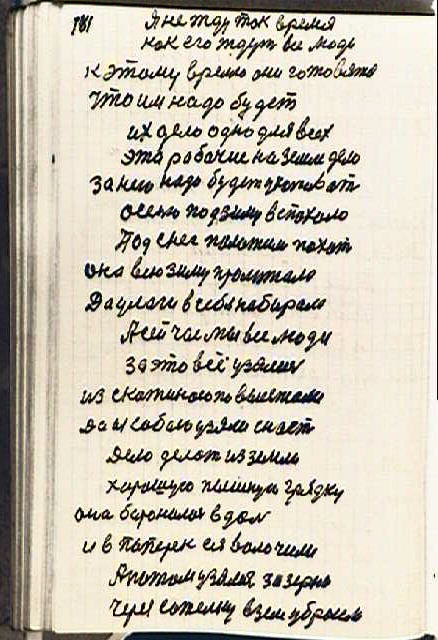 781 Я не жду ток время
как его ждут все люди
к этому время они готовятся
Что им надо будет
их дело одно для всех
это рабочие на земли дело
за нею надо будет
осенью под зиму вспахало
Под снег положим пахат
она всю зиму пролежала
Да улаги в себя набирала
А сейчас мы все люди
за это всё узялись
из скотиною повыежали
да и с собою узяли
Дело делат из земли
хорошую пышную грядку
она боронилас вдол
и в поперек ея волочили
А потом узялся за зерно
Через сотелку взем убросем